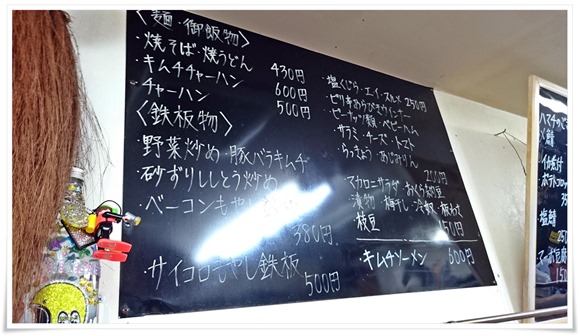 〈麺・御飯物〉
・焼そば・焼うどん 430円
・キムチチャーハン 600円
・チャーハン 500円
〈鉄板物〉
・野菜炒め・豚バラキムチ
・砂ずりししとう炒め
・ベーコンもやし
380円
・サイコロもやし鉄板 500円
・塩くじら・エイ・スルメ 250円
・ピリ辛あらびきウインナー
・ピーナッツ類・ベビーハム
・サラミ・チーズ・トマト
・らっきょう・あじみりん
200円
・マカロニサラダ・おくら納豆
・漬物・梅干し・冷奴・板わさ
・枝豆 150円
・キムチソーメン 600円
ポテトフロッ
塩鯖
250
マーボ豆腐
150